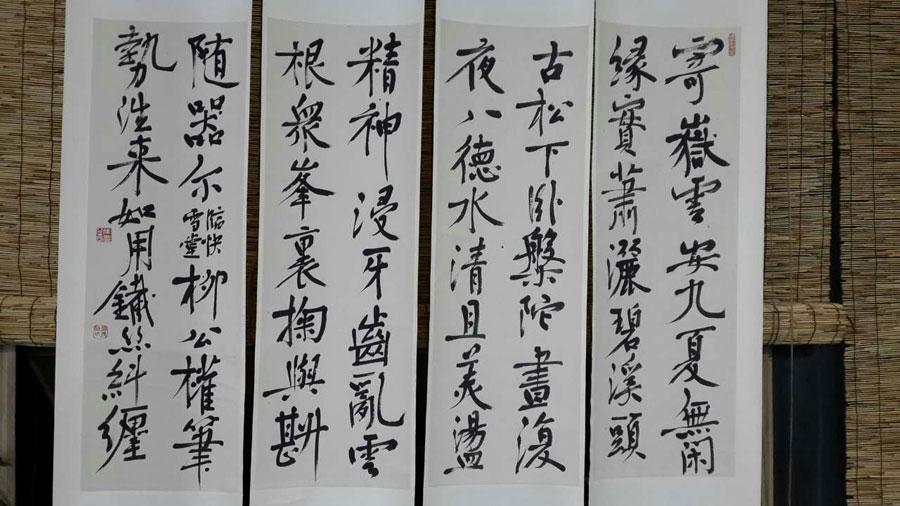 寄嶽雲安九夏無闲
緣實蕭灑碧溪頭
古松下卧盤陀畫復
夜八德水清且美盪
精神浸牙齒亂雲
根衆峯裏掬與斟
随器尔
臨快
雪堂
柳公權筆
勢往来如用鐵絲糾纏